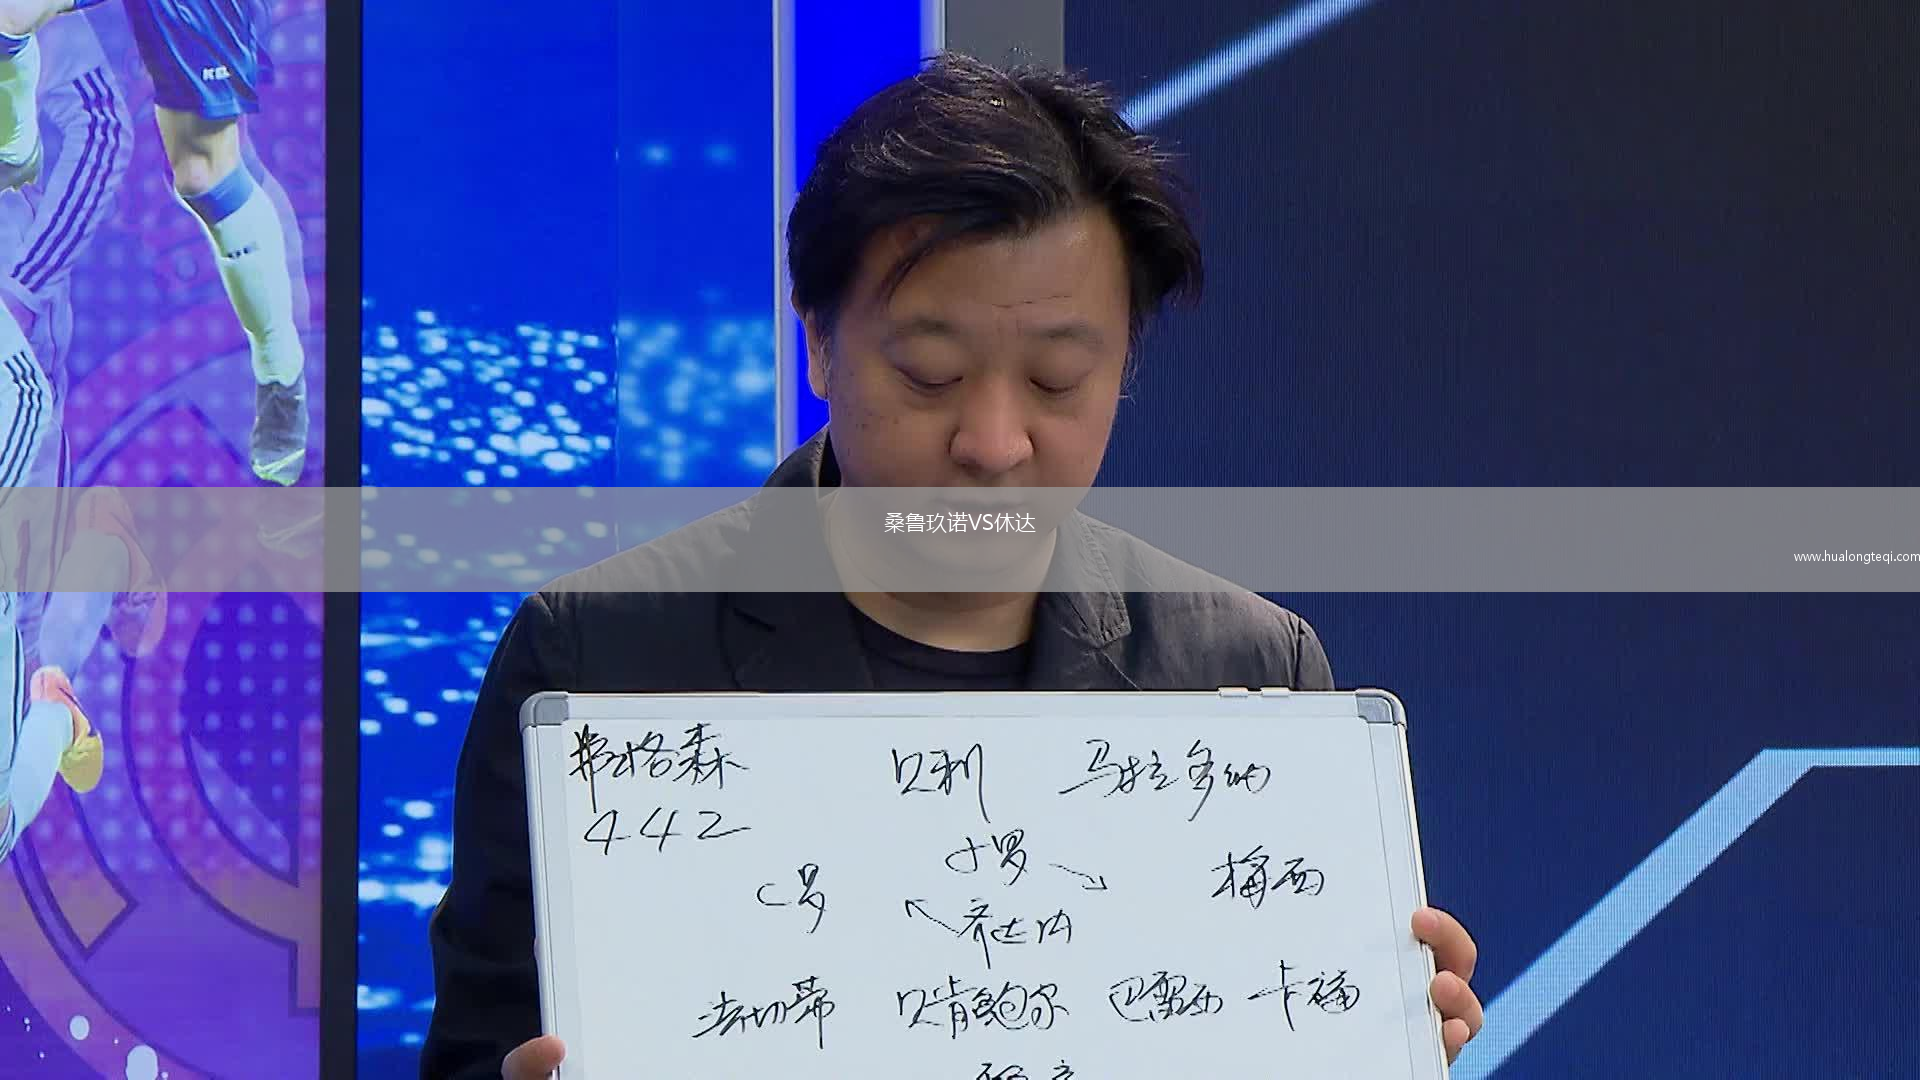 KELME
桑鲁玖诺VS休达
www.hualongteqi.com
弗格森 贝利 马拉多纳
442
小罗
C罗 梅西
齐达内
法切蒂 贝肯鲍尔 巴雷西 卡福